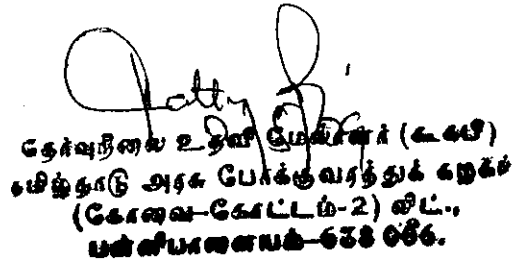 தேர்வுநிலை உதவி மேலாளர் (கூகபி)
தமிழ்நாடு அரசு போக்குவரத்துக் கழகம்
(கோவை கோட்டம்-2) லிட்.,
பள்ளிபாளையம்-638 006.